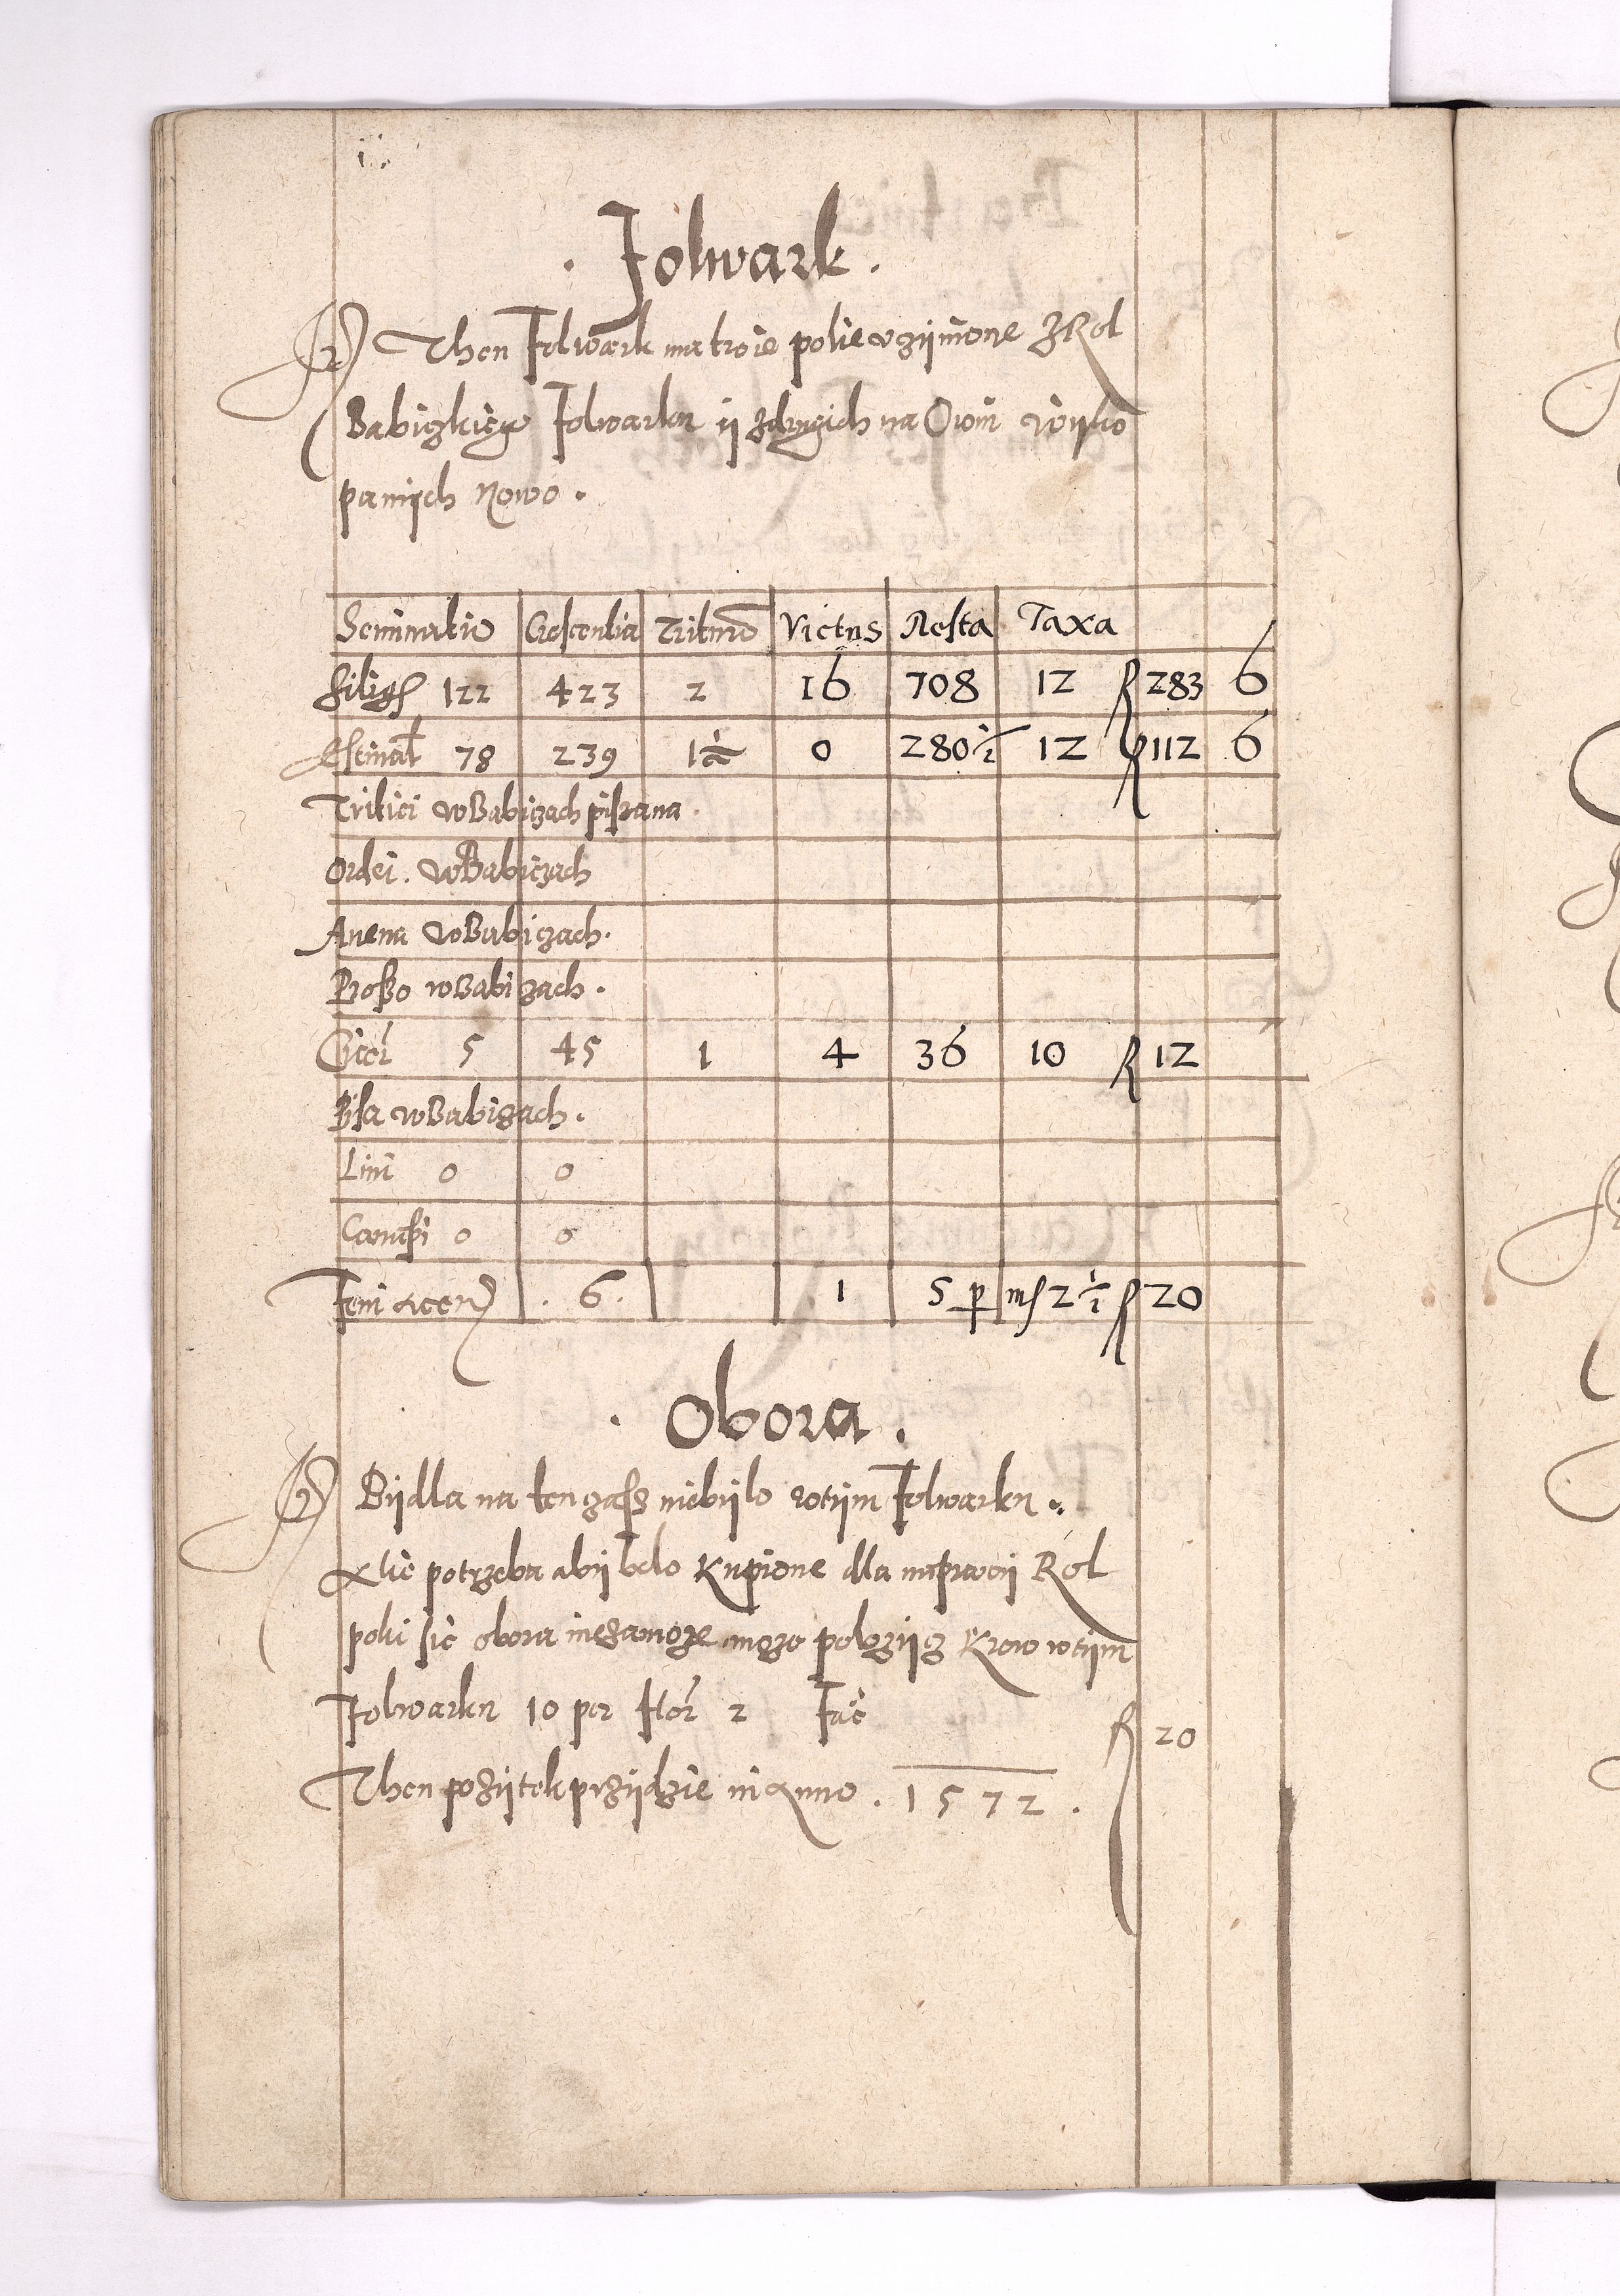 . Folwark .
Then Folwark ma troie polie vczijnione z Rol
Babiczkiego Folwarku ij zdrugich na Owin wijko
panijch nowo .
Seminatio Crescentia Tritura Victus Resta Taxa
Siligis 122 423 2 16 708 12 R 283 6
Estinal 78 239 1 1/2 0 280 1/2 12 R 112 6
Tritici w Babiczach pisana
Ordei . w Babiczach
Auena w Babiczach .
Proßo w Babiczach .
Cicer 5 45 1 4 36 10 R 12
Pisa w Babiczach .
Lini 0 0
Canapi 0 0
Feni acerui . 6 . 1 5 p ms 2 1/2 R 20
. Obora .
Bijdla na ten czass niebijlo wtijm Folwarku .
Alie potrzeba abij belo kupione dla naprawij Rol
poki sie obora niezamoze moze polozijcz Krow wtijm
Folwarku 10 per flor 2 Fac R 20
Then pozijtek przijdzie in Anno . 1572 .